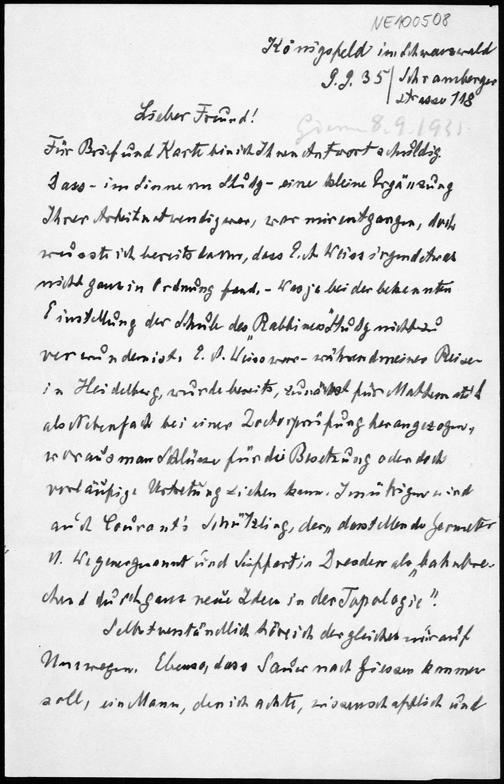 NE100508
Königsfeld im Schwarzwald
9.9.35 Schramberger
strasse 118
Lieber Freund!
8.9.193
Für Brief und Karte bin ich Ihnen Antwort schuldig.
Dass - im Sinne von Study - eine kleine Ergänzung
Ihrer Arbeit notwendig war, war mir entgangen, doch
wusste ich bereits davon, dass E. A. Weiss irgend etwas
nicht ganz in Ordnung fand. - Was ja bei der bekannten
Einstellung der Schule des "Rabbiners" Study nicht zu
verwundern ist. E. A. Weiss war - während meiner Reise -
in Heidelberg, wurde bereits, zunächst für Mathematik
als Nebenfach bei einer Doctorprüfung herangezogen,
woraus man Schlüsse für die Besetzung oder doch
vorläufige Vertretung ziehen kann. Im übrigen wird
auch Courant's Schützling, der "darstellende Geometer"
U. Wegener genannt und Seifert in Dresden als "bahnbre-
chend durch ganz neue Ideen in der Topologie".
Selbstverständlich höre ich dergleichen nur auf
Umwegen. Ebenso, dass Sauer nach Giessen kommen
soll, ein Mann, den ich achte, wissenschaftlich und